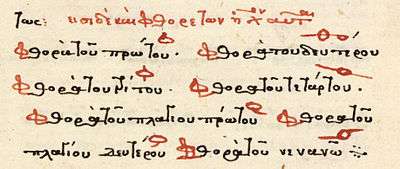 τως: εἰσὶ δὲ καὶ φθοραὶ τῶν ἤχων αὗται
φθορὰ τοῦ πρώτου. φθορὰ τοῦ δευτέρου
φθορὰ τοῦ τρίτου. φθορὰ τοῦ τετάρτου.
φθορὰ τοῦ πλαγίου πρώτου φθορὰ τοῦ
πλαγίου δευτέρου φθορὰ τοῦ νενανῶ